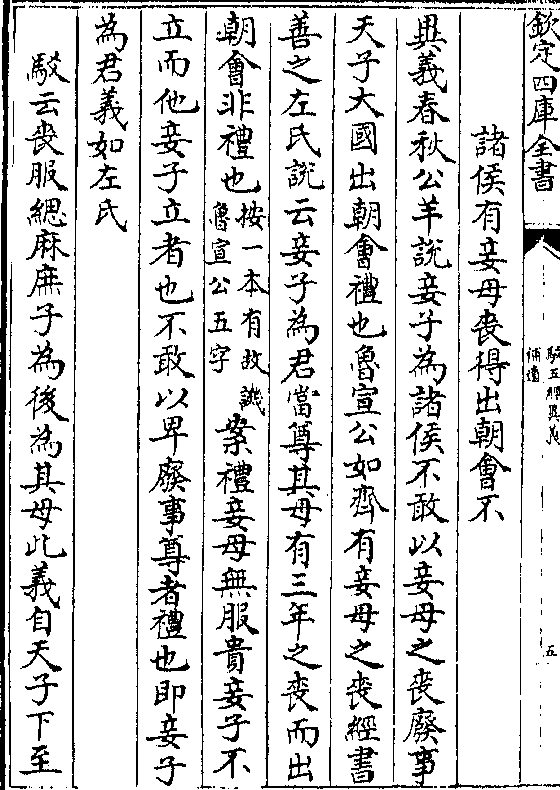 欽定四庫全書
駁五經異義
補遺
五
諸侯有妾母喪得出朝會不
異義春秋公羊說妾子為諸侯不敢以妾母之喪廢事
天子大國出朝會禮也魯宣公如齊有妾母之喪經書
善之左氏說云妾子為君當尊其母有三年之喪而出
朝會非禮也按一本有故譏魯宣公五字案禮妾母無服貴妾子不
立而他妾子立者也不敢以卑廢事尊者禮也即妾子
為君義如左氏
駮云喪服緦麻庶子為後為其母此義自天子下至